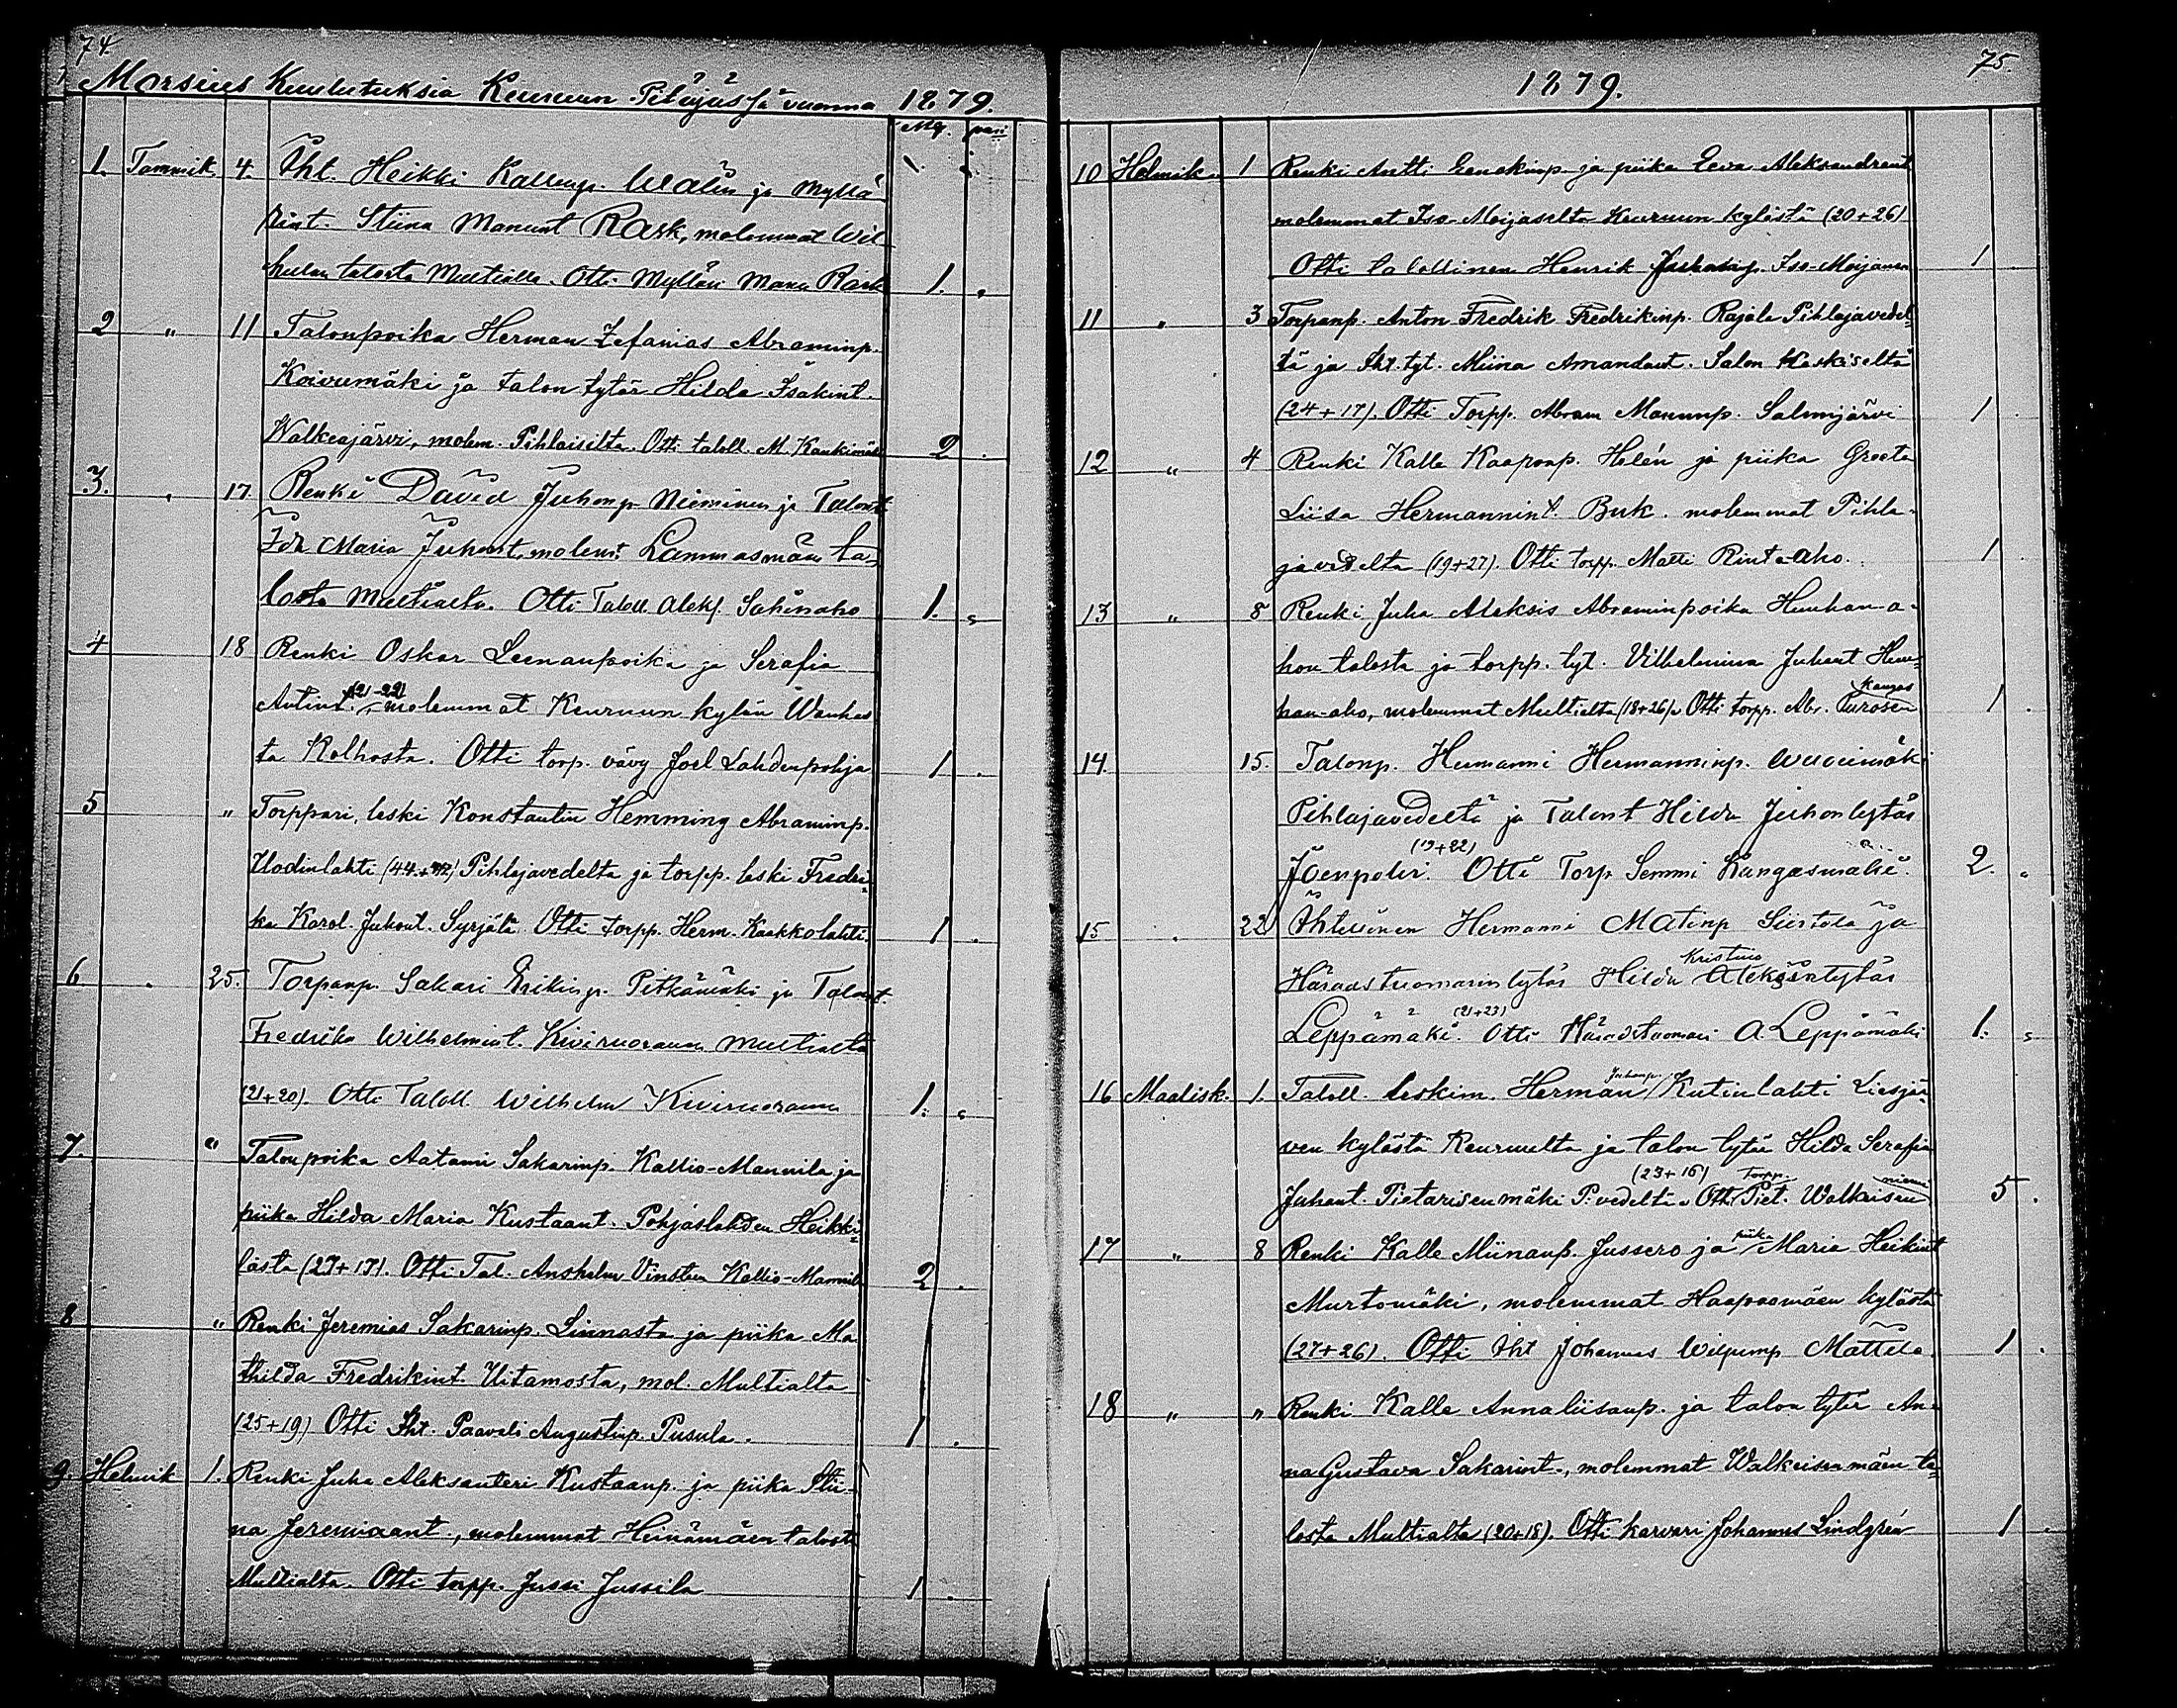 74.
Morsius Kuulutuksia Keuruun Pitäjässä vuonna 1879.
Mg. peni
1. Tammik. 4. Iht. Heikki Kallenp. Walin ja Myllä-
rint. Stiina Manunt Rask, molemmat Wil-
hulan talosta Multialla. Otti Mylläri Manu Rask 1. „
2 „ 11 Talonpoika Herman Zefanias Abraminp.
Koivumäki ja talon tytär Hilda Isakint.
Walkeajärvi, molem. Pihlaiselta. Otti taloll. M. Kaukimäki 2 .
3. „ 17 Renki David Juhonp Nieminen ja Talont
Ida Maria Juhont, molemt Lammasmäen ta-
losta Multialta. Otti Taloll Aleks. Sahinaho 1. „
4 18 Renki Oskar Leenanpoika ja Serafia
Antint. (21-22) molemmat Keuruun kylän Wanhas
ta Kolhosta. Otti torp. vävy Joel Lahdenpohja 1 .
5 „ Torppari, leski Konstantin Hemming Abraminp.
Uodinlahti Pihlajavedelta ja torpp. leski Fredri-
ka Karol. Juhont. Syrjälä Otti torpp. Herm. Kaakkolahti. 1 .
6 „ 25. Torpanp. Sakari Erikinp. Pitkämäki ja Talont.
Fredrika Wilhelmint. Kiviruoranen Multialta
(21+20). Otti Taloll Wilhelm Kiviruoranen 1. „
7. „ Talonpoika Aatami Sakarinp. Kallio-Mannila ja
piika Hilda Maria Kustaant. Pohjaslahden Heikki-
lästa (27+17). Otti Tal. Anshelm Vinsten Kallio-Mannila 2 .
8 „ Renki Jeremias Sakarinp. Linnasta ja piika Ma
thilda Fredrikint. Uitamosta, mol. Multialta
(25+19) Otti Iht. Paavali Augustinp. Pusula. 1 .
9. Helmik 1. Renki Juha Aleksanteri Kustaanp. ja piika Stii-
na Jeremiaant., molemmat Heinämäen talosta
Multialta. Otti torpp. Jussi Jussila 1 .
75.
1879.
10 Helmik. 1 Renki Antti Eenokinp. ja piika Eeva Aleksandrant
molemmat Iso-Meijaselta Keuruun kylästä (20+26)
Otti talollinen Henrik Iso-Meijanen 1
11 „ 3 Torpanp. Anton Fredrik Fredrikinp. Rajala Pihlajavedel-
tä ja Iht. tyt. Miina Amandant. Salon Kaskiselta
(24+17). Otti Torpp. Abram Manunp. Salmijärvi 1
12 „ 4 Renki Kalle Kaaponp. Holén ja piika Greeta
Liisa Hermannint. Buk. molemmat Pihla-
javedelta (19+27). Otti torpp. Matti Rinta-aho. 1
13 „ 8 Renki Juha Aleksis Abraminpoika Huuhan-a-
hon talosta ja torpp. tyt. Vilhelmina Juhant Huu-
han-aho, molemmat Multialta (18+26). Otti torpp. Abr. Kangas 1 .
14. 15. Talonp. Hermanni Hermanninp. Wuorimäki
Pihlajavedeltä ja Talont Hilda Juhontytär
(19+22)
Joenpolvi. Otti Torp Semmi Kangasmäki. 2. „
15 „ 22 Ihtellinen Hermanni Matinp Siistola ja
Kristiina
Häradstuomarin tytär Hilda Aleksintytär
(21+23)
Leppämäki. Otti Häradstuomari A. Leppämäki 1. „
16 Maalisk. 1. Taloll. leskim. Herman Juhanp. Kutinlahti Liesjär-
ven kylästä Keuruulta ja talon tytär Hilda Serafia
(23+16) torpp. niemi
Juhant. Pietarisenmäki P.vedeltä. Otti Piet. Walkeisen 5 .
17 „ 8 Renki Kalle Miinanp. Jussero ja piika Maria Heikint
Murtomäki, molemmat Haapaamäen kylästä
(27+26). Otti Iht Johannes Wilpunp Mattila. 1 .
18 „ „ Renki Kalle Annaliisanp. ja talon tytär An-
na Gustava Sakarint., molemmat Walkeisenmäen ta-
losta Multialta (20+18). Otti karvari Johannes Lindgrén 1 .